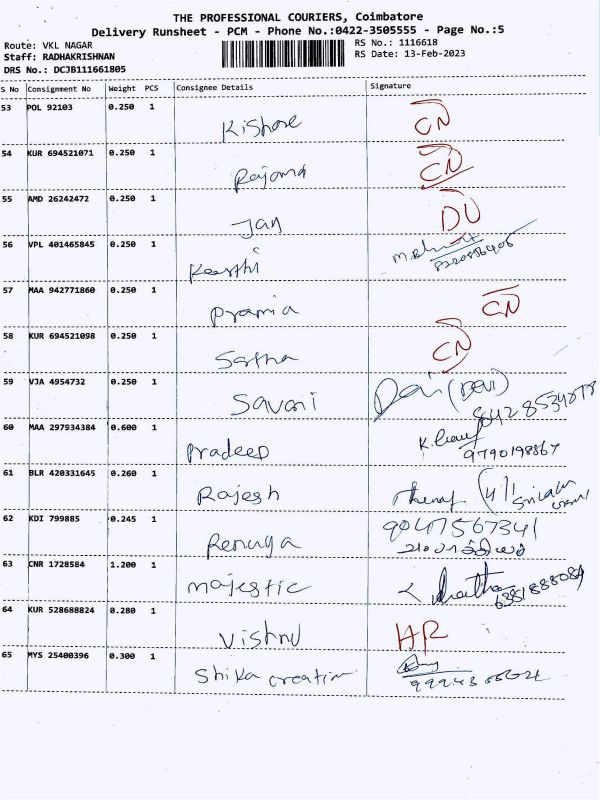 THE PROFESSIONAL COURIERS, Coimbatore
Delivery Runsheet - PCM - Phone No.:0422-3505555 - Page No.:5
Route: VKL NAGAR RS No.: 1116618
Staff: RADHAKRISHNAN RS Date: 13-Feb-2023
DRS No.: DCJB111661805
S No Consignment No Weight PCS Consignee Details Signature
53 POL 92103 0.250 1 Kishore CN
54 KUR 694521071 0.250 1 CN
55 AMD 26242472 0.250 1 Jan DU
56 VPL 401465845 0.250 1 Keerthi
57 MAA 942771860 0.250 1 Pramia CN
58 KUR 694521098 0.250 1 Sasha CN
59 VJA 4954732 0.250 1 Savani Devi (DEVI)
60 MAA 297934384 0.600 1 Pradeep
9790198867
61 BLR 420331645 0.260 1 Rajesh
62 KDI 799885 0.245 1 Renuga 9047567341
63 CNR 1728584 1.200 1 majestic 6381888089
64 KUR 528688824 0.280 1 Vishnu HR
65 MYS 25400396 0.300 1 Shika creation